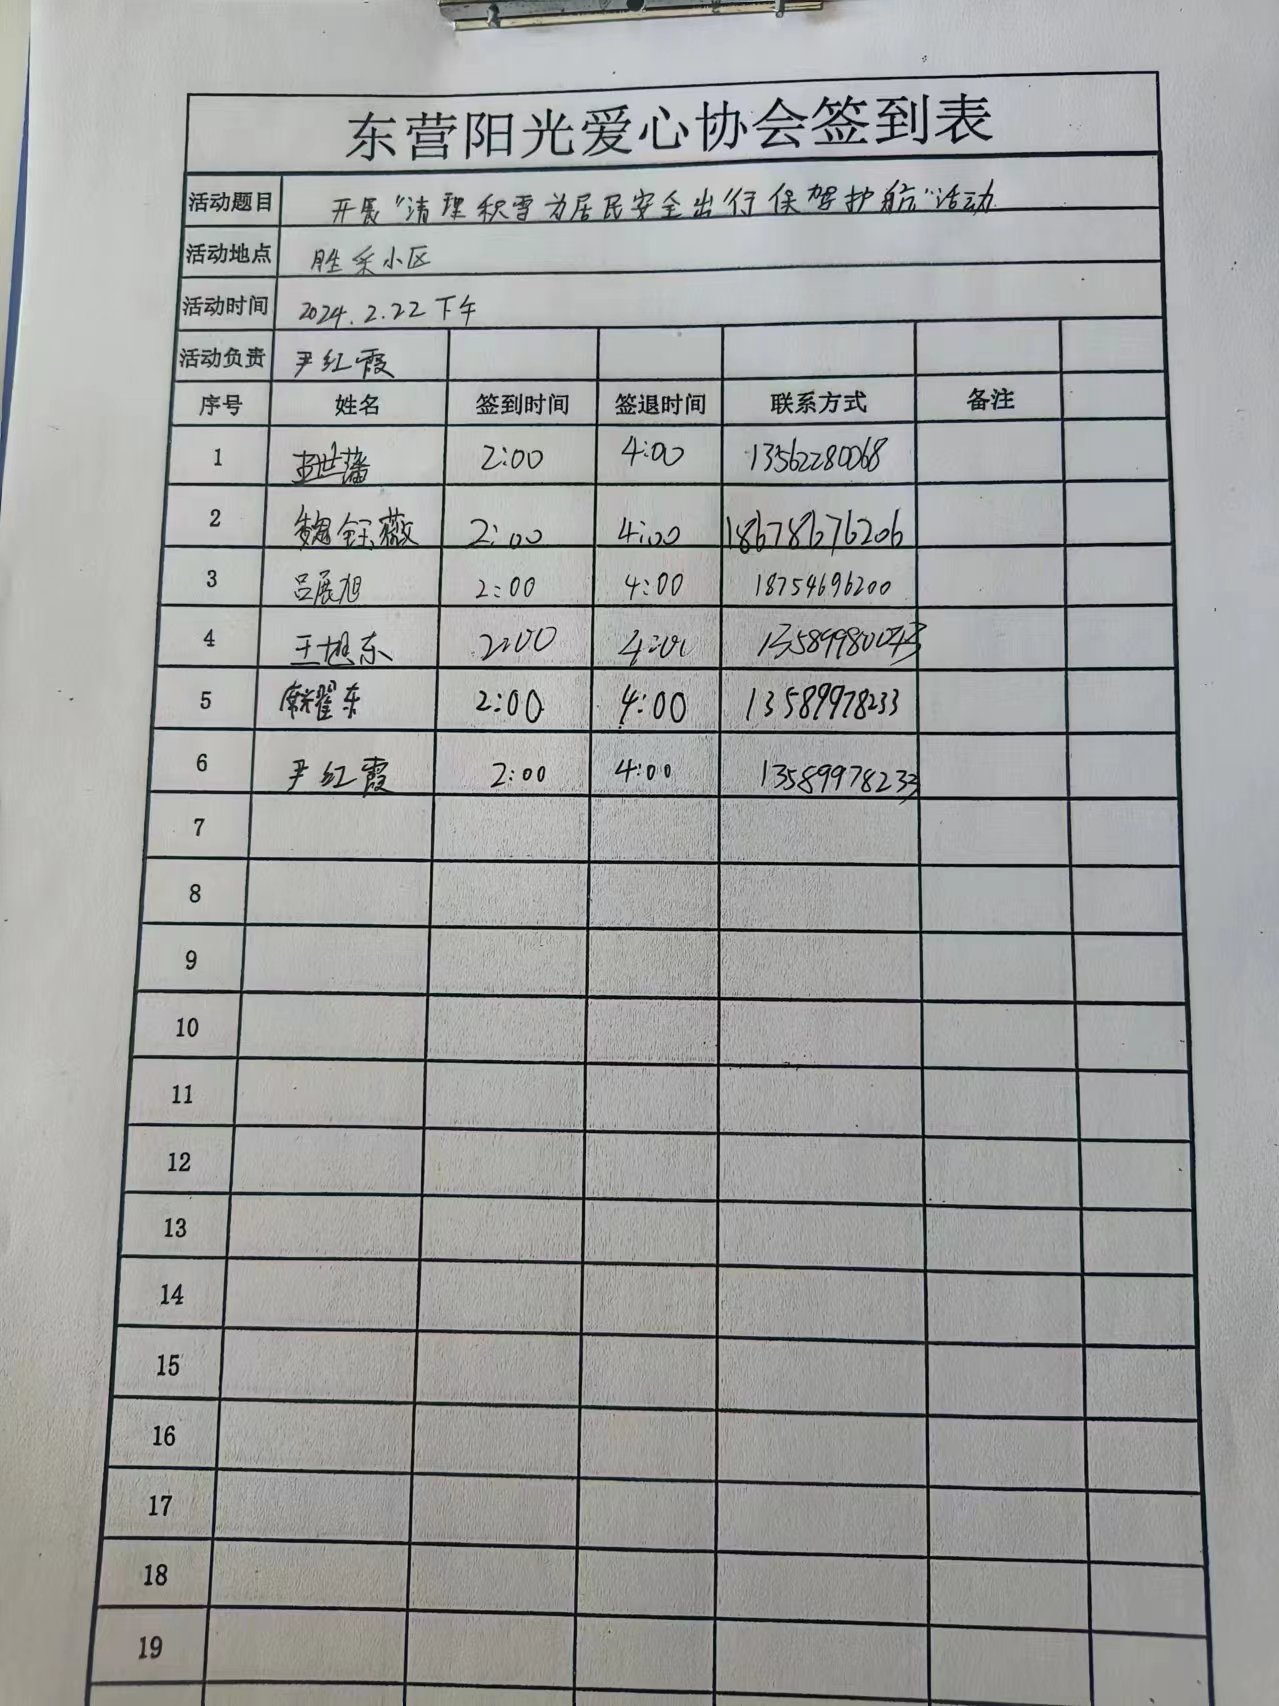 东营阳光爱心协会签到表
活动题目 开展“清理积雪为居民安全出行保驾护航”活动
活动地点 胜采小区
活动时间 2024.2.22下午
活动负责 尹红霞
序号 姓名 签到时间 签退时间 联系方式 备注
1 2:00 4:00 13562280068
2 魏钰薇 2:00 4:00 18678676206
3 吕展旭 2:00 4:00 18754696200
4 王旭东 2:00 4:00 13589980043
5 耀东 2:00 4:00 13589978233
6 尹红霞 2:00 4:00 13589978233
7
8
9
10
11
12
13
14
15
16
17
18
19